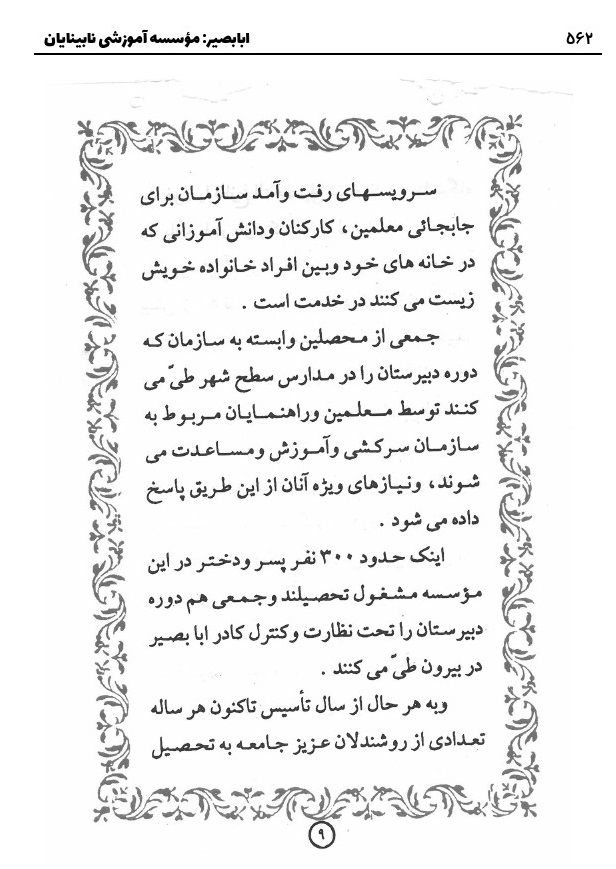 ۵۶۲
ابابصیر: مؤسسه آموزشی نابینایان
سرویسهای رفت وآمد سازمان برای
جابجائی معلمین، کارکنان ودانش آموزانی که
در خانه های خود وبین افراد خانواده خویش
زیست می کنند در خدمت است .
جمعی از محصلین وابسته به سازمان که
دوره دبیرستان را در مدارس سطح شهر طیّ می
کنند توسط معلمین وراهنمایان مربوط به
سازمان سرکشی وآموزش ومساعدت می
شوند، ونیازهای ویژه آنان از این طریق پاسخ
داده می شود .
اینک حدود ۳۰۰ نفر پسر ودختر در این
مؤسسه مشغول تحصیلند وجمعی هم دوره
دبیرستان را تحت نظارت وکنترل کادر ابا بصیر
در بیرون طیّ می کنند .
وبه هر حال از سال تأسیس تاکنون هر ساله
تعدادی از روشندلان عزیز جامعه به تحصیل
۹